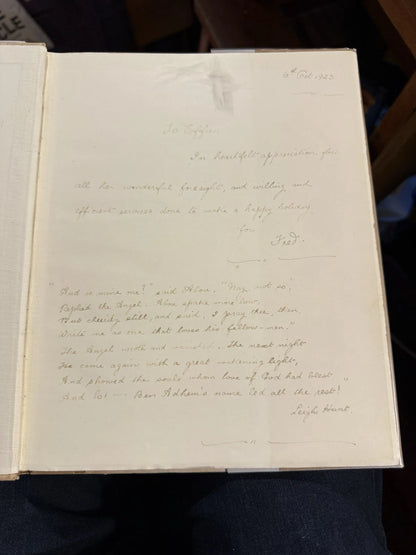 6th Oct 1923
To Effie.
In heartfelt appreciation for
all her wonderful foresight, and willing and
efficient services done to make a happy holiday
for
Fred.
"And is mine one?" said Abou, "Nay, not so,"
Replied the Angel. Abou spoke more low,
But cheerily still, and said, I pray thee, then,
Write me as one that loves his fellow-men."
The Angel wrote and vanished. The next night
He came again with a great wakening light,
And showed the souls whom love of God had blest
And lo! — Ben Adhem's name led all the rest!"
Leigh Hunt.